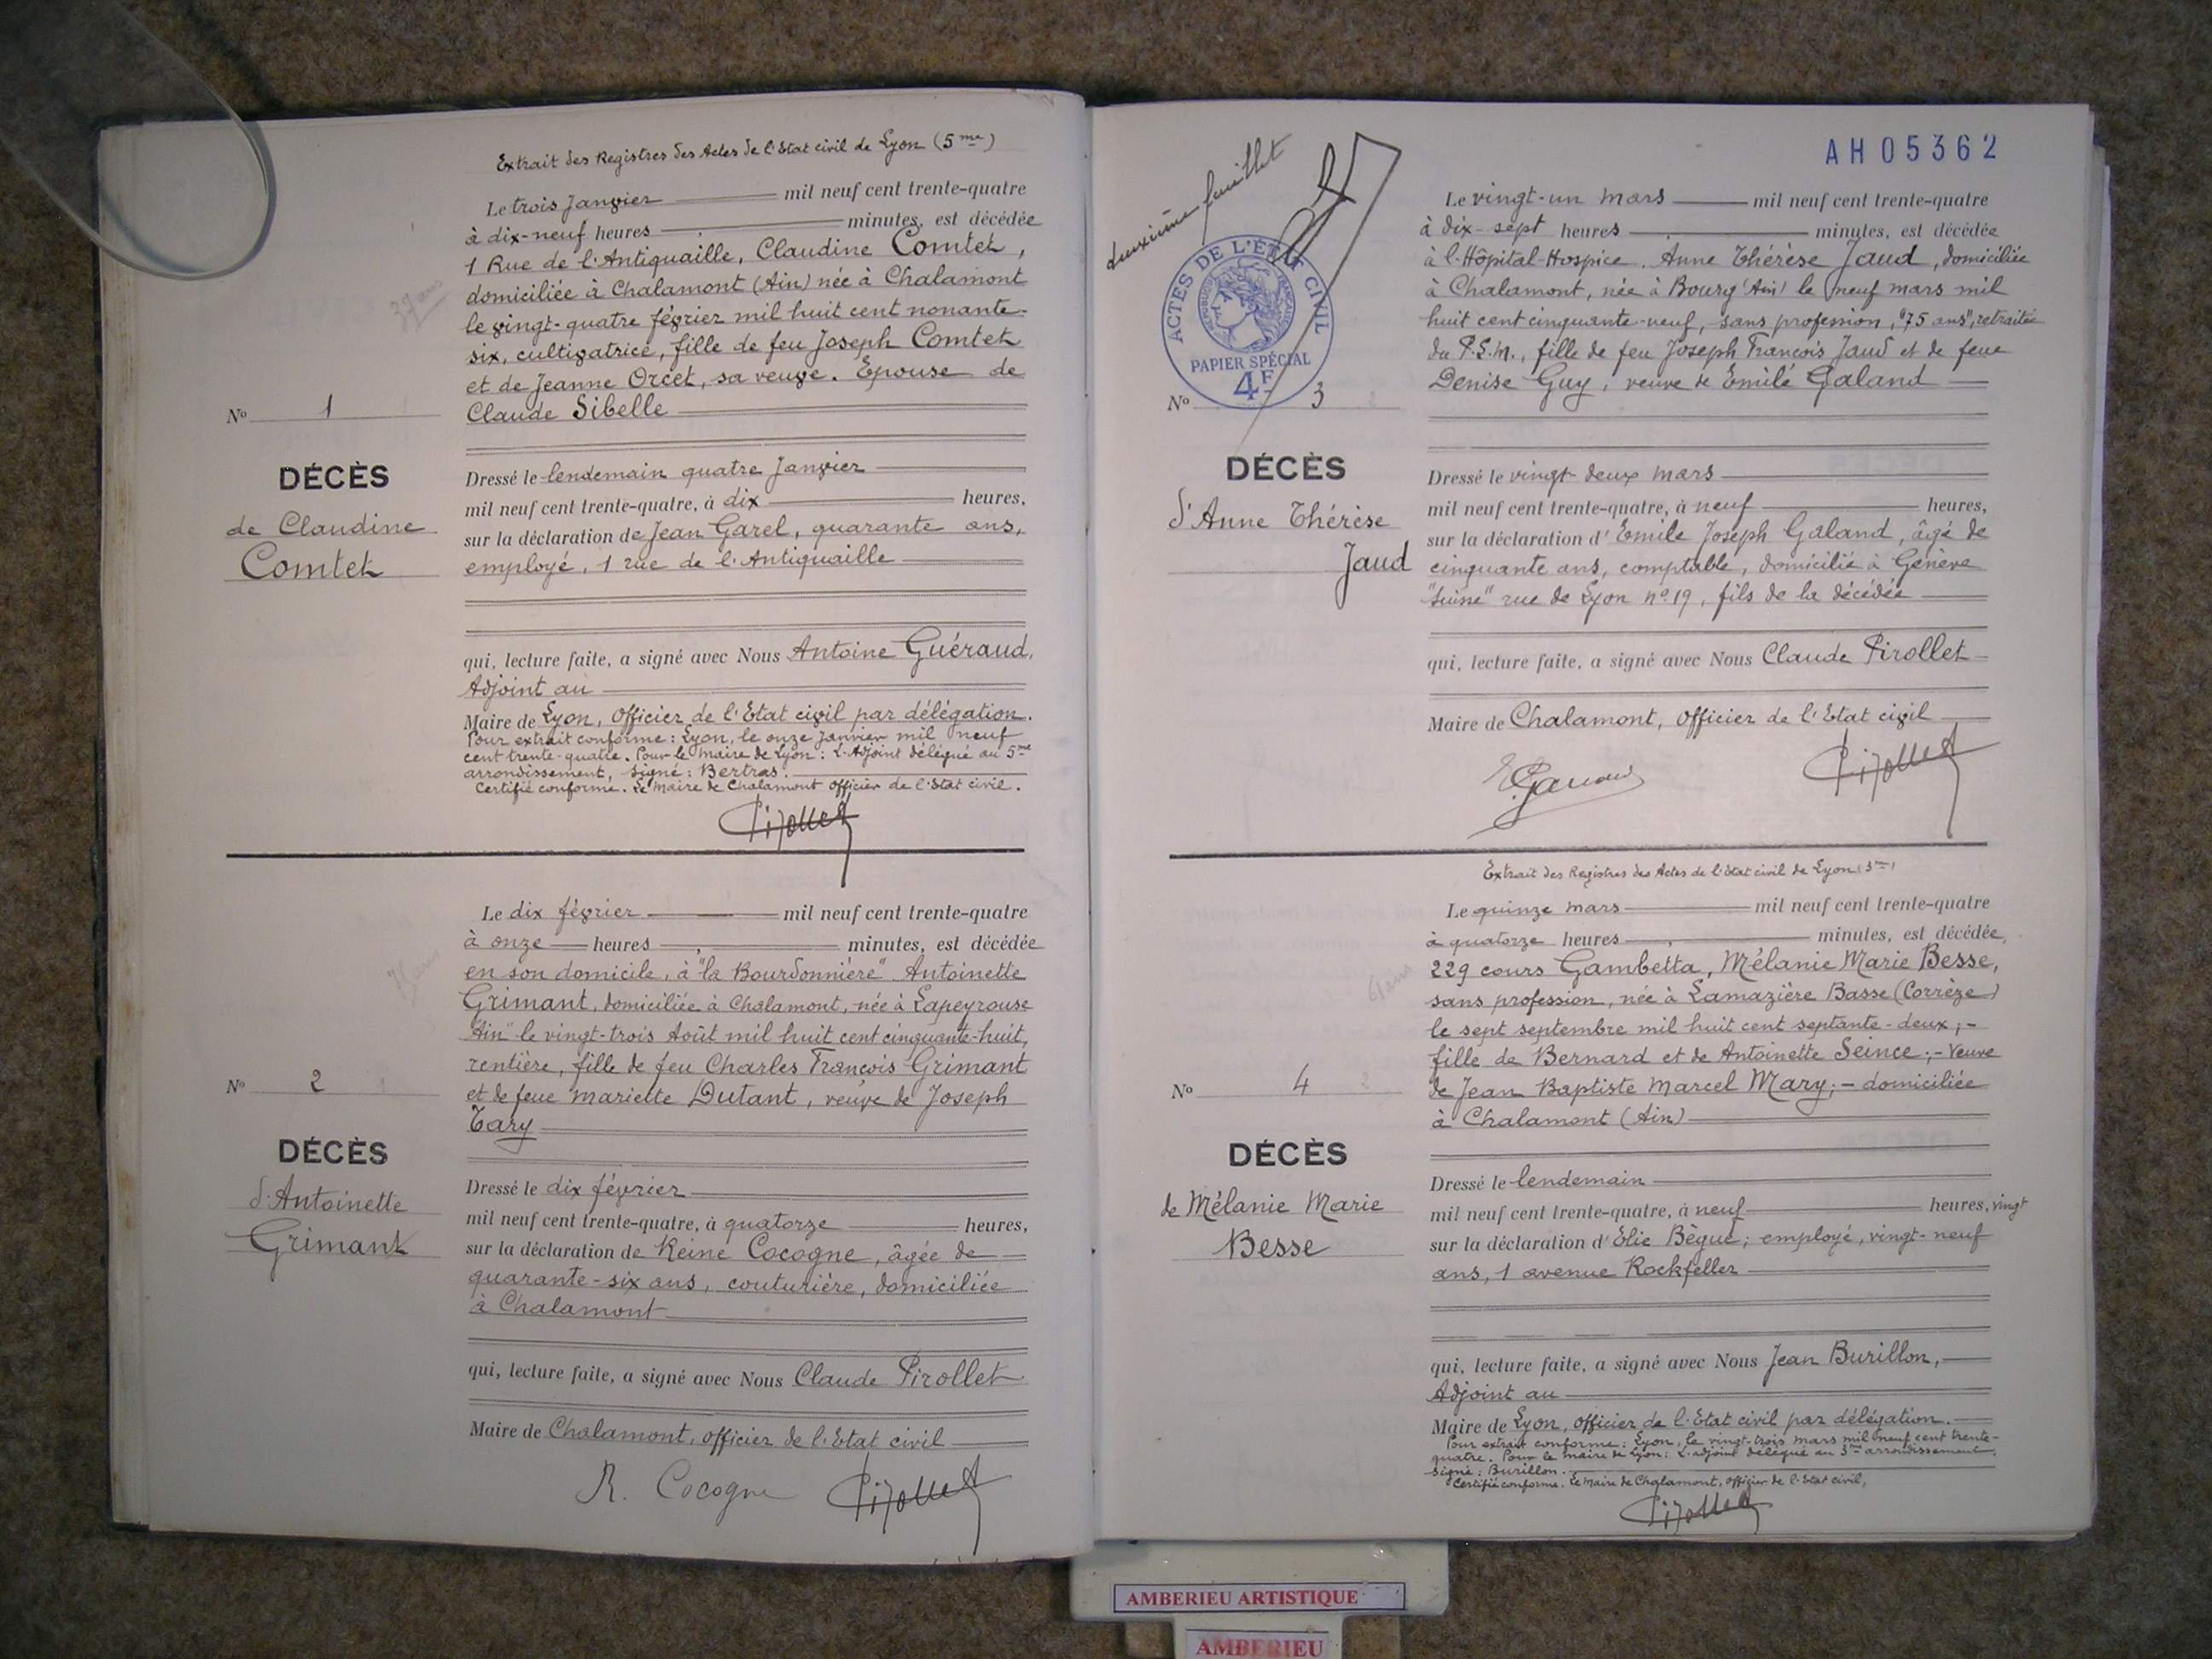 Extrait des Registres des Actes de l'Etat civil de Lyon (5me)
Le trois Janvier mil neuf cent trente-quatre
à dix-neuf heures minutes, est décédée
1 Rue de l'Antiquaille, Claudine Comtet,
domiciliée à Chalamont (Ain) née à Chalamont
37 ans
le vingt-quatre février mil huit cent nonante-
six, cultivatrice, fille de feu Joseph Comtet
et de Jeanne Orcet, sa veuve. Epouse de
Claude Sibelle
No 1
DÉCÈS
de Claudine
Comtet
Dressé le lendemain quatre Janvier
mil neuf cent trente-quatre, à dix heures,
sur la déclaration de Jean Garel, quarante ans,
employé, 1 rue de l'Antiquaille
qui, lecture faite, a signé avec Nous Antoine Guéraud,
Adjoint au
Maire de Lyon, Officier de l'Etat civil par délégation.
Pour extrait conforme : Lyon, le onze Janvier mil neuf
cent trente-quatre. Pour le Maire de Lyon : L'Adjoint délégué au 5me
arrondissement, signé : Bertras.
Certifié conforme. Le Maire de Chalamont officier de l'Etat civil.
Pirollet
Le dix février mil neuf cent trente-quatre
à onze heures minutes, est décédée
en son domicile, à "la Bourdonnière" Antoinette
Grimant, domiciliée à Chalamont, née à Lapeyrouse
"Ain" le vingt-trois Août mil huit cent cinquante-huit,
rentière, fille de feu Charles François Grimant
et de feue Mariette Dutant, veuve de Joseph
Tary
No 2
DÉCÈS
d'Antoinette
Grimant
Dressé le dix février
mil neuf cent trente-quatre, à quatorze heures,
sur la déclaration de Reine Cocogne, âgée de
quarante-six ans, couturière, domiciliée
à Chalamont
qui, lecture faite, a signé avec Nous Claude Pirollet
Maire de Chalamont, officier de l'Etat civil
R. Cocogne Pirollet
AH05362
deuxième feuillet
ACTES DE L'ÉTAT CIVIL
RÉPUBLIQUE FRANÇAISE
PAPIER SPÉCIAL
4F
Le vingt-un mars mil neuf cent trente-quatre
à dix-sept heures minutes, est décédée
à l'Hôpital-Hospice, Anne Thérèse Jaud, domiciliée
à Chalamont, née à Bourg (Ain) le neuf mars mil
huit cent cinquante-neuf, sans profession, "75 ans", retraitée
du P.L.M., fille de feu Joseph François Jaud et de feue
Denise Guy, veuve de Emile Galand
No 3
DÉCÈS
d'Anne Thérèse
Jaud
Dressé le vingt-deux mars
mil neuf cent trente-quatre, à neuf heures,
sur la déclaration d'Emile Joseph Galand, âgé de
cinquante ans, comptable, domicilié à Genève
"Suisse" rue de Lyon no 19, fils de la décédée
qui, lecture faite, a signé avec Nous Claude Pirollet
Maire de Chalamont, Officier de l'Etat civil
Pirollet
Extrait des Registres des Actes de l'Etat civil de Lyon (3me)
Le quinze mars mil neuf cent trente-quatre
à quatorze heures minutes, est décédée,
229 cours Gambetta, Mélanie Marie Besse,
61 ans
sans profession, née à Lamazière Basse (Corrèze)
le sept septembre mil huit cent septante-deux ;-
fille de Bernard et de Antoinette Seince ;- Veuve
de Jean Baptiste Marcel Mary ;- domiciliée
à Chalamont (Ain)
No 4
DÉCÈS
de Mélanie Marie
Besse
Dressé le lendemain
mil neuf cent trente-quatre, à neuf heures, vingt
sur la déclaration d'Elie Bègue ; employé, vingt-neuf
ans, 1 avenue Rockfeller
qui, lecture faite, a signé avec Nous Jean Burillon,
Adjoint au
Maire de Lyon, officier de l'Etat civil par délégation.
Pour extrait conforme : Lyon, le vingt-trois mars mil neuf cent trente-
quatre. Pour le Maire de Lyon : L'adjoint délégué au 3me arrondissement,
signé : Burillon.
Certifié conforme. Le Maire de Chalamont, officier de l'Etat civil,
Pirollet
AMBERIEU ARTISTIQUE
AMBERIEU